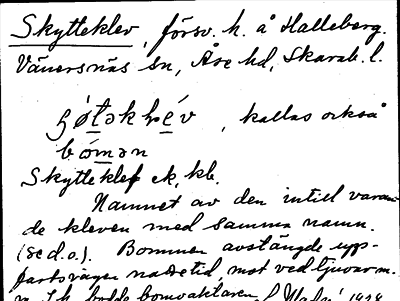 Skytteklev, försv. h. å Halleberg.
Vänersnäs sn, Åse hd, Skarab. l.
kallas också
bómən
Skytteklef ek, kb.
Namnet av den intill varan-
de kleven med samma namn.
(se d.o.). Bommen avstängde upp-
fartsvägen nattetid, mot ved tjuvar m.
bodde bomvaktaren